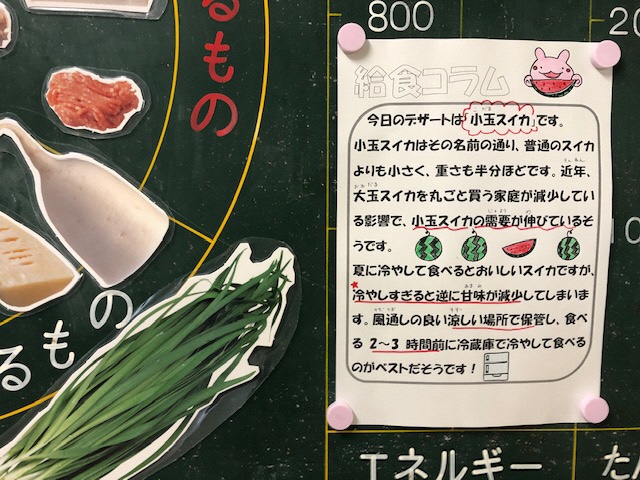 るもの
800
20
給食コラム
こだま
今日のデザートは「小玉スイカ」です。
小玉スイカはその名前の通り、普通のスイカ
よりも小さく、重さも半分ほどです。近年、
大玉スイカを丸ごと買う家庭が減少してい
る影響で、小玉スイカの需要が伸びているそ
うです。
夏に冷やして食べるとおいしいスイカですが、
★冷やしすぎると逆に甘味が減少してしまいま
す。風通しの良い涼しい場所で保管し、食べ
る 2～3 時間前に冷蔵庫で冷やして食べる
のがベストだそうです！
るもの
エネルギー
たん